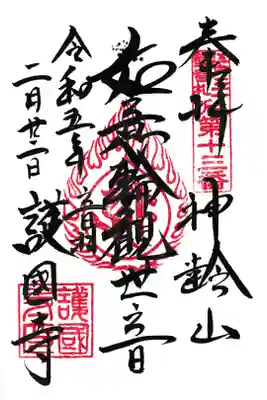 奉拝 神齢山
如意輪観世音
護國寺
令和五年
二月廿二日
第十三番
護國